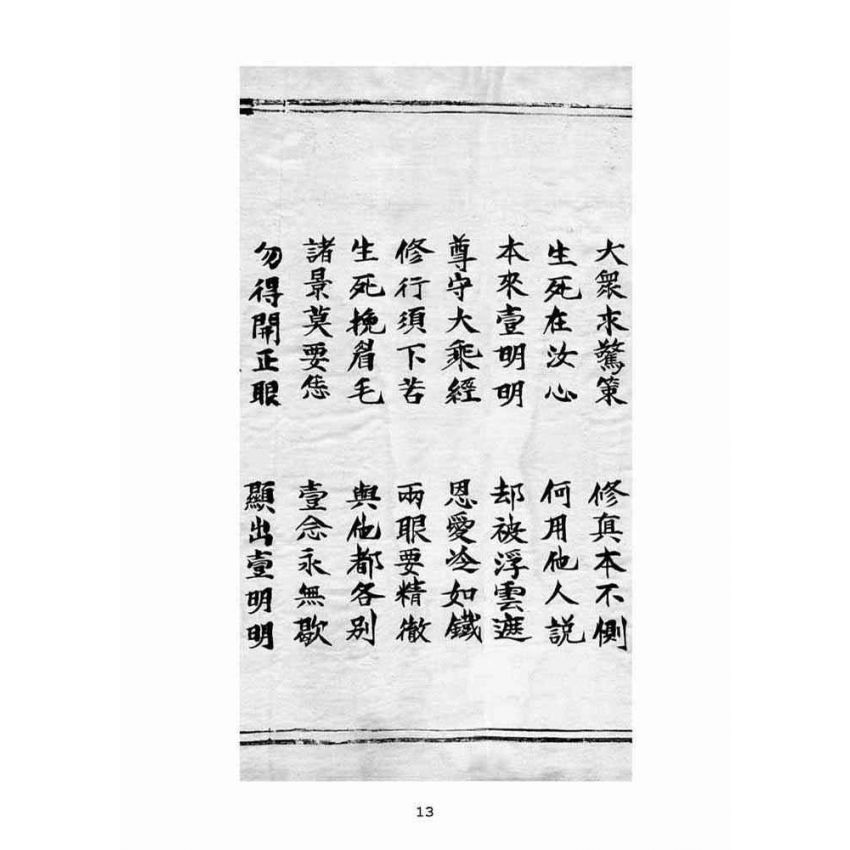 大衆求驚策 修真本不側
生死在汝心 何用他人説
本來壹明明 却被浮雲遮
尊守大乘經 恩愛冷如鐵
修行須下苦 兩眼要精徹
生死挽眉毛 與他都各別
諸景莫要恁 壹念永無歇
勿得開正眼 顯出壹明明
13